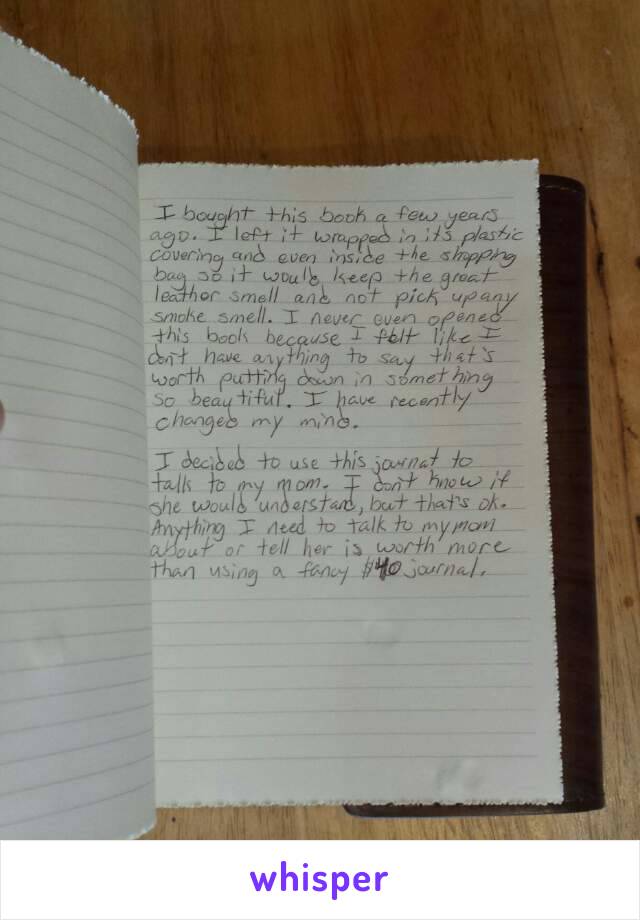 I bought this book a few years
ago. I left it wrapped in it's plastic
covering and even inside the shopping
bag so it would keep the great
leather smell and not pick up any
smoke smell. I never even opened
this book because I felt like I
don't have anything to say that's
worth putting down in something
so beautiful. I have recently
changed my mind.
I decided to use this journal to
talk to my mom. I don't know if
she would understand, but that's ok.
Anything I need to talk to my mom
about or tell her is worth more
than using a fancy $40 journal.
whisper